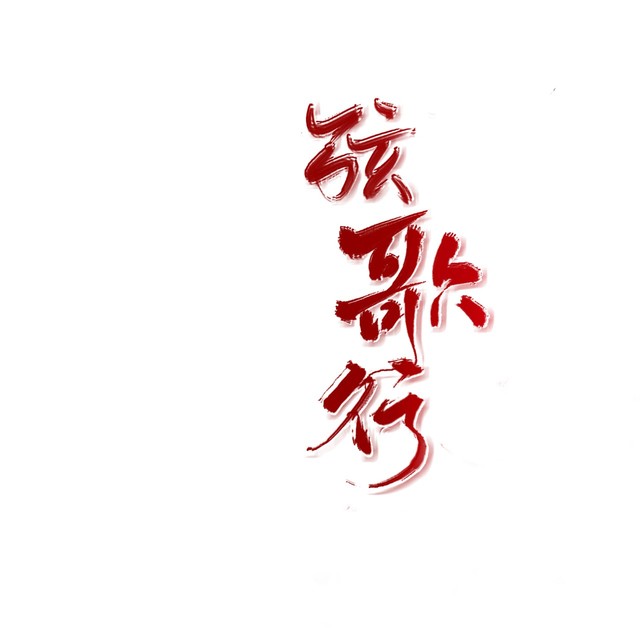 弦歌行